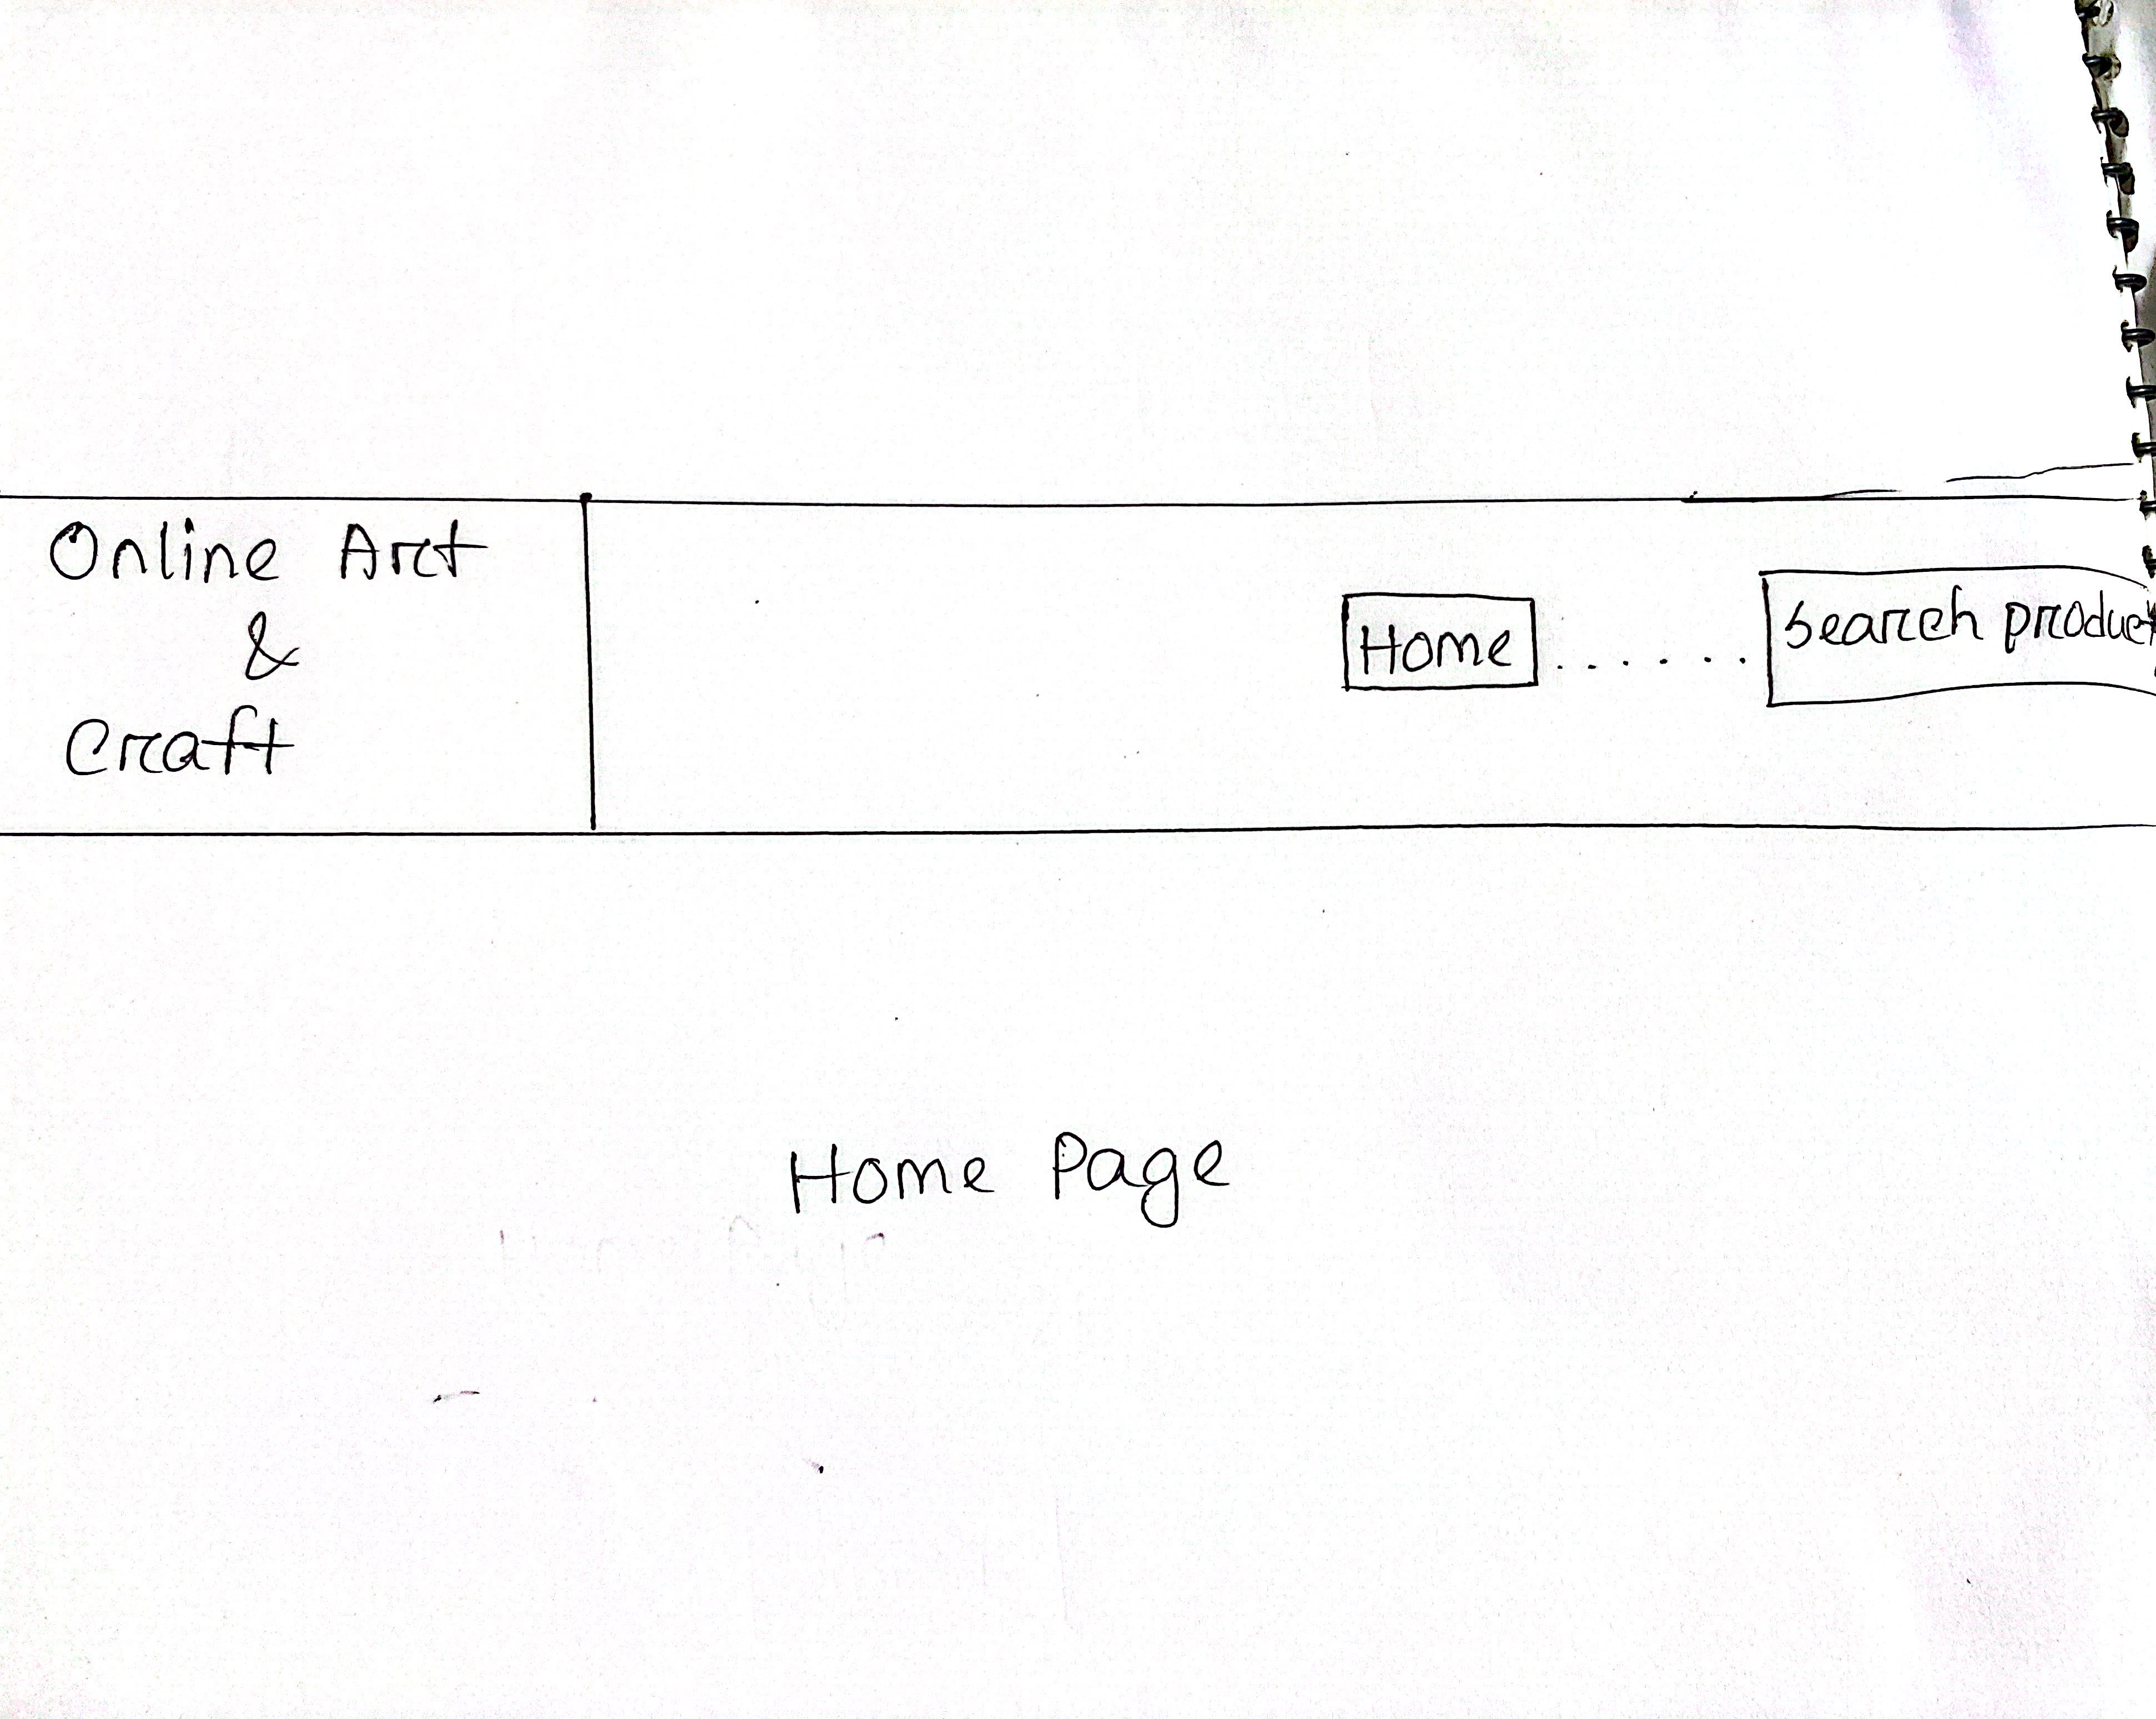 Online Art
&
Craft
Home ....... Search product
Home Page